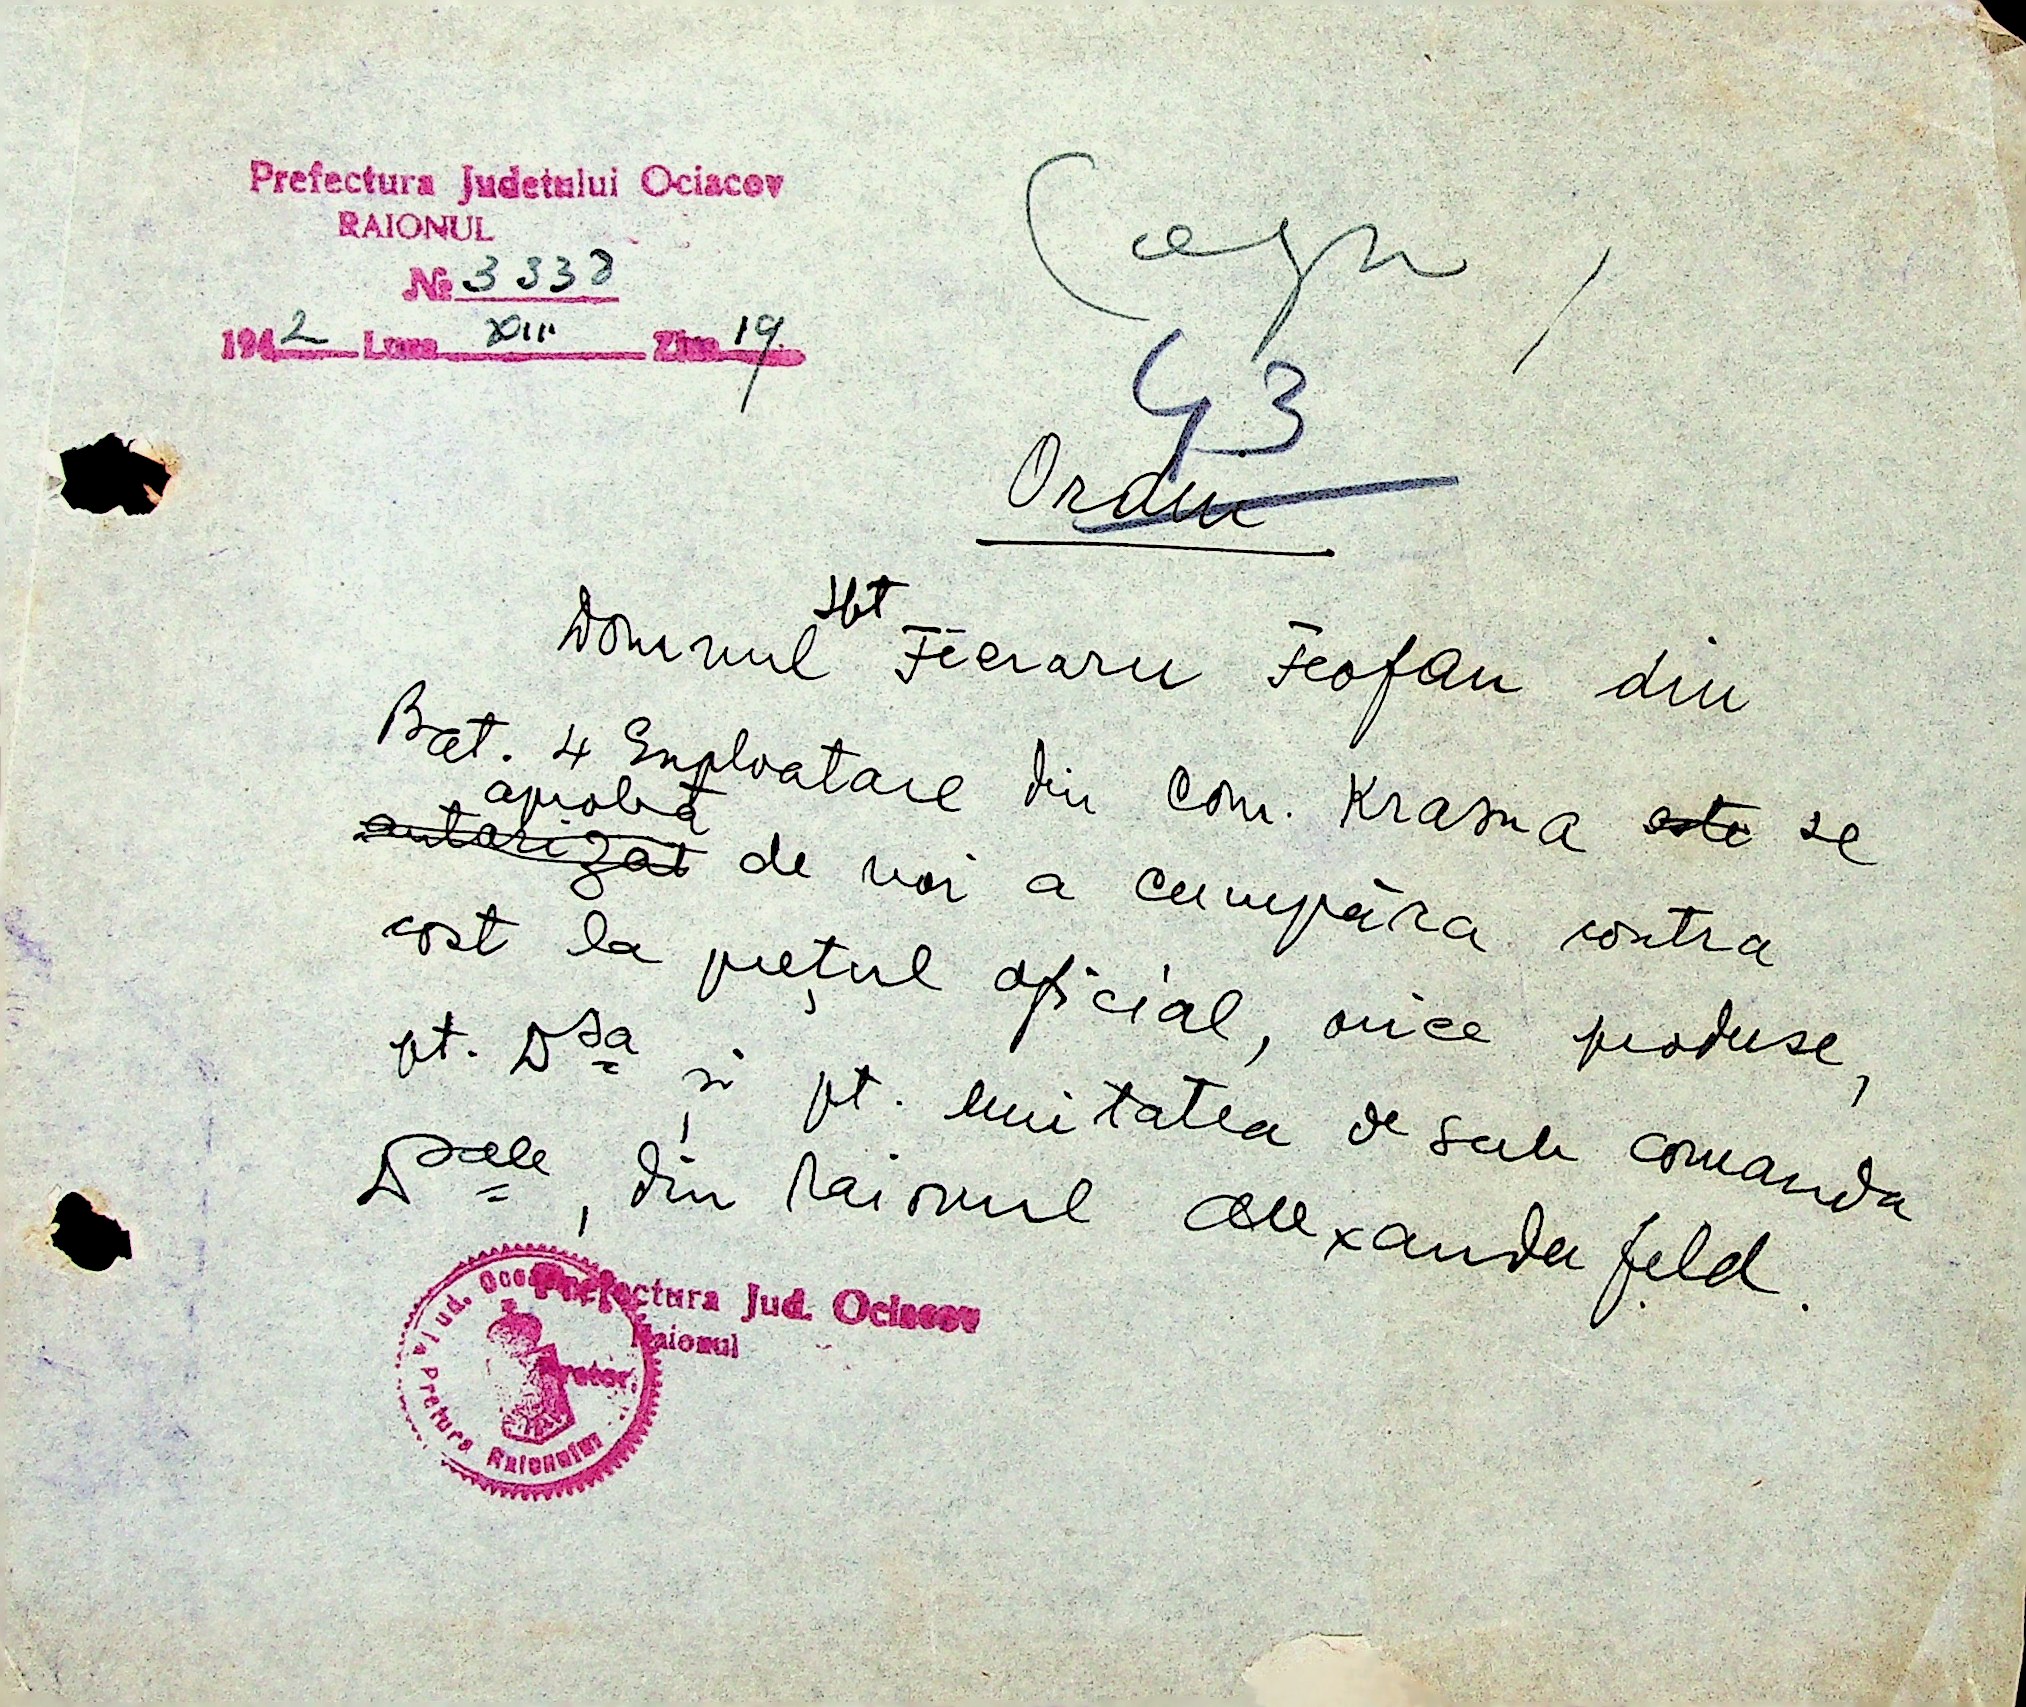 Prefectura Judetului Ociacov
RAIONUL
№ 3338
1942 Luna XII Ziua 19
43
Ordin
Domnul slt Fieraru Feofan din
Bat. 4 Exploatare din Com. Krasna este se
aprobă
autorizat de noi a cumpăra contra
cost la prețul oficial, orice produse,
pt. Dsa și pt. unitatea de sub comanda
Dsale, din Raionul Alexanderfeld.
Prefectura Jud. Ociacov
Raionul
Pretor,
Jud. Oceacov
Pretura Raionului